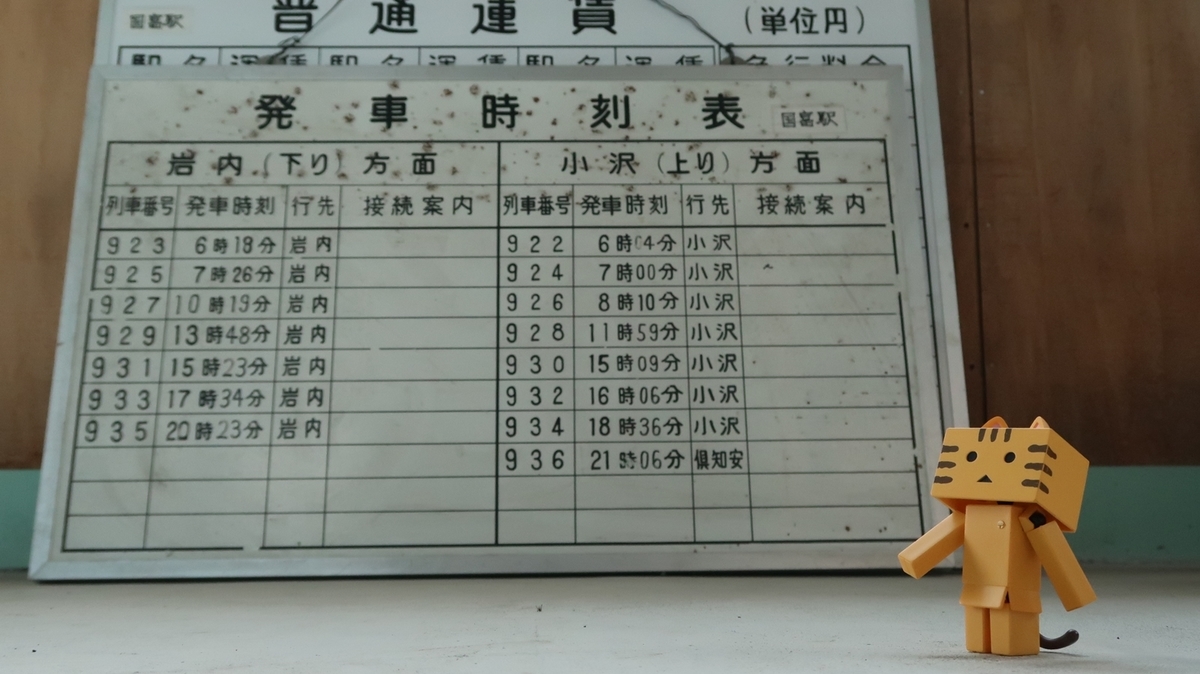 国富駅 普通運賃 (単位円)
駅名 運賃 駅名 運賃 駅名 運賃 急行料金
発車時刻表 国富駅
岩内(下り)方面 小沢(上り)方面
列車番号 発車時刻 行先 接続案内 列車番号 発車時刻 行先 接続案内
923 6時18分 岩内 922 6時04分 小沢
925 7時26分 岩内 924 7時00分 小沢
927 10時19分 岩内 926 8時10分 小沢
929 13時48分 岩内 928 11時59分 小沢
931 15時23分 岩内 930 15時09分 小沢
933 17時34分 岩内 932 16時06分 小沢
935 20時23分 岩内 934 18時36分 小沢
936 21時06分 倶知安